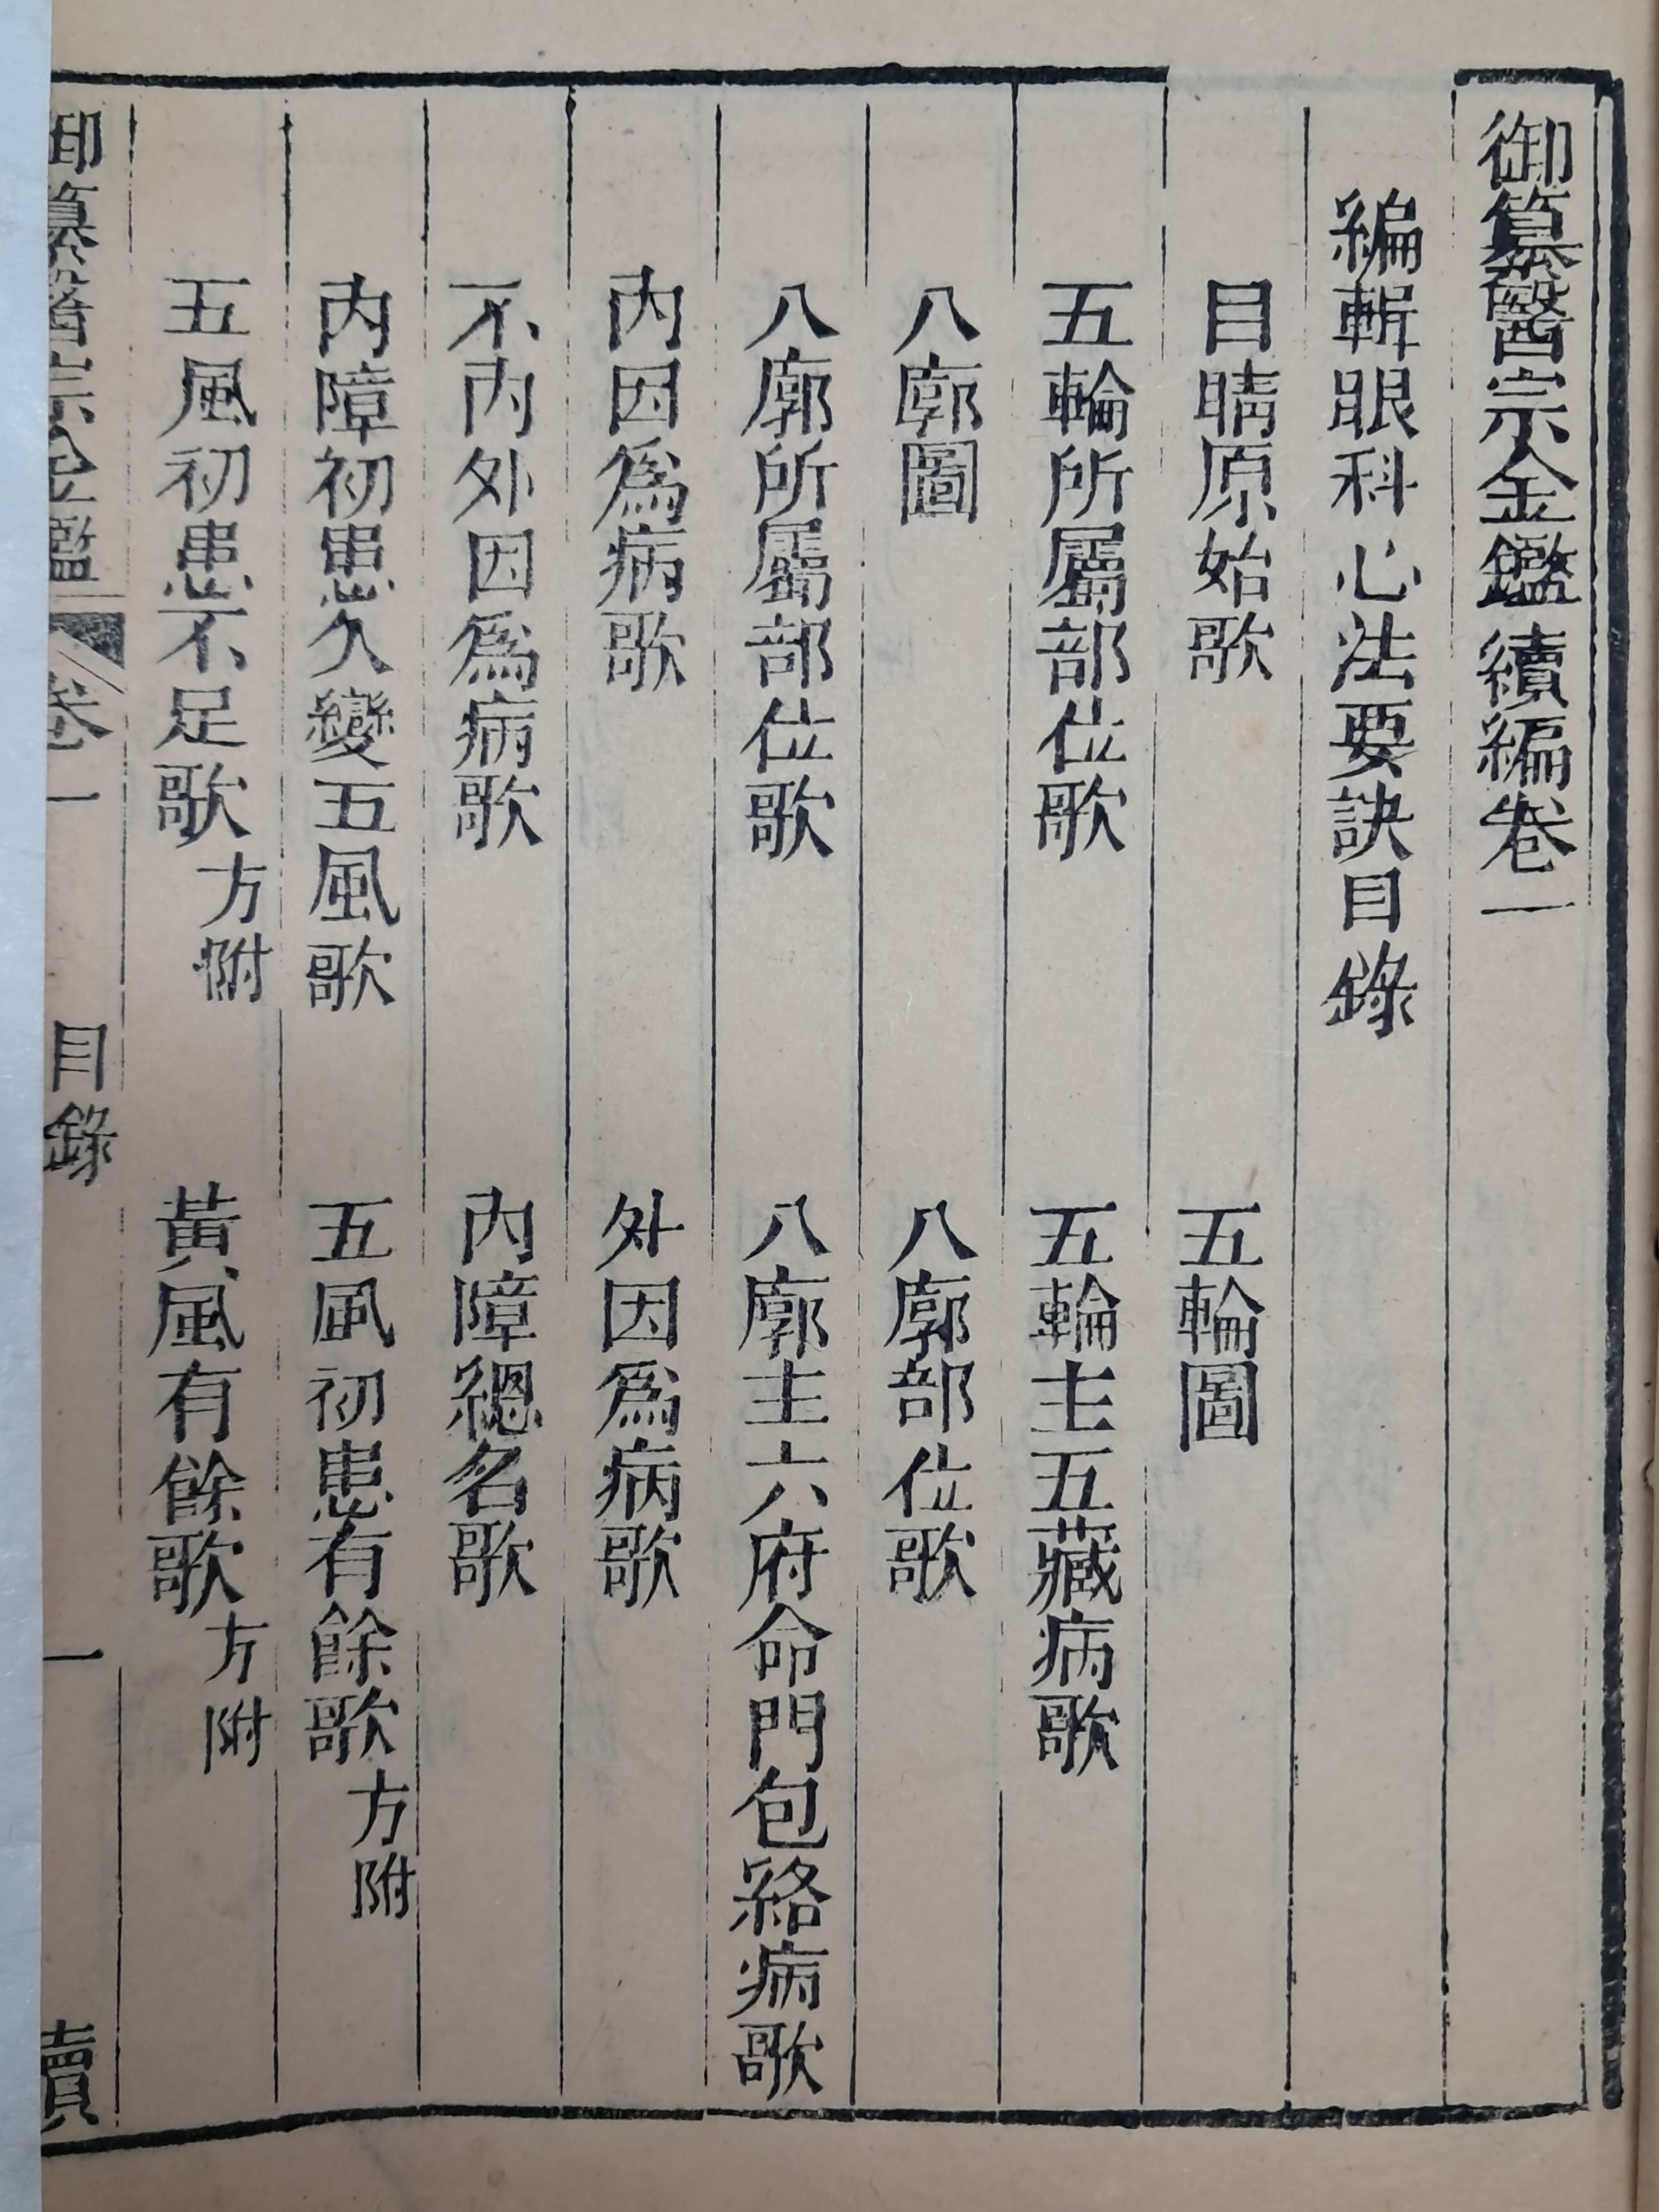 御纂醫宗金鑑續編卷一
編輯眼科心法要訣目錄
目睛原始歌　五輪圖
五輪所屬部位歌　五輪主五藏病歌
八廓圖　八廓部位歌
八廓所屬部位歌　八廓主六府命門包絡病歌
內因爲病歌　外因爲病歌
不內外因爲病歌　內障總名歌
內障初患久變五風歌　五風初患有餘歌方附
五風初患不足歌方附　黃風有餘歌方附
御纂醫宗金鑑　卷一　目錄　一　續